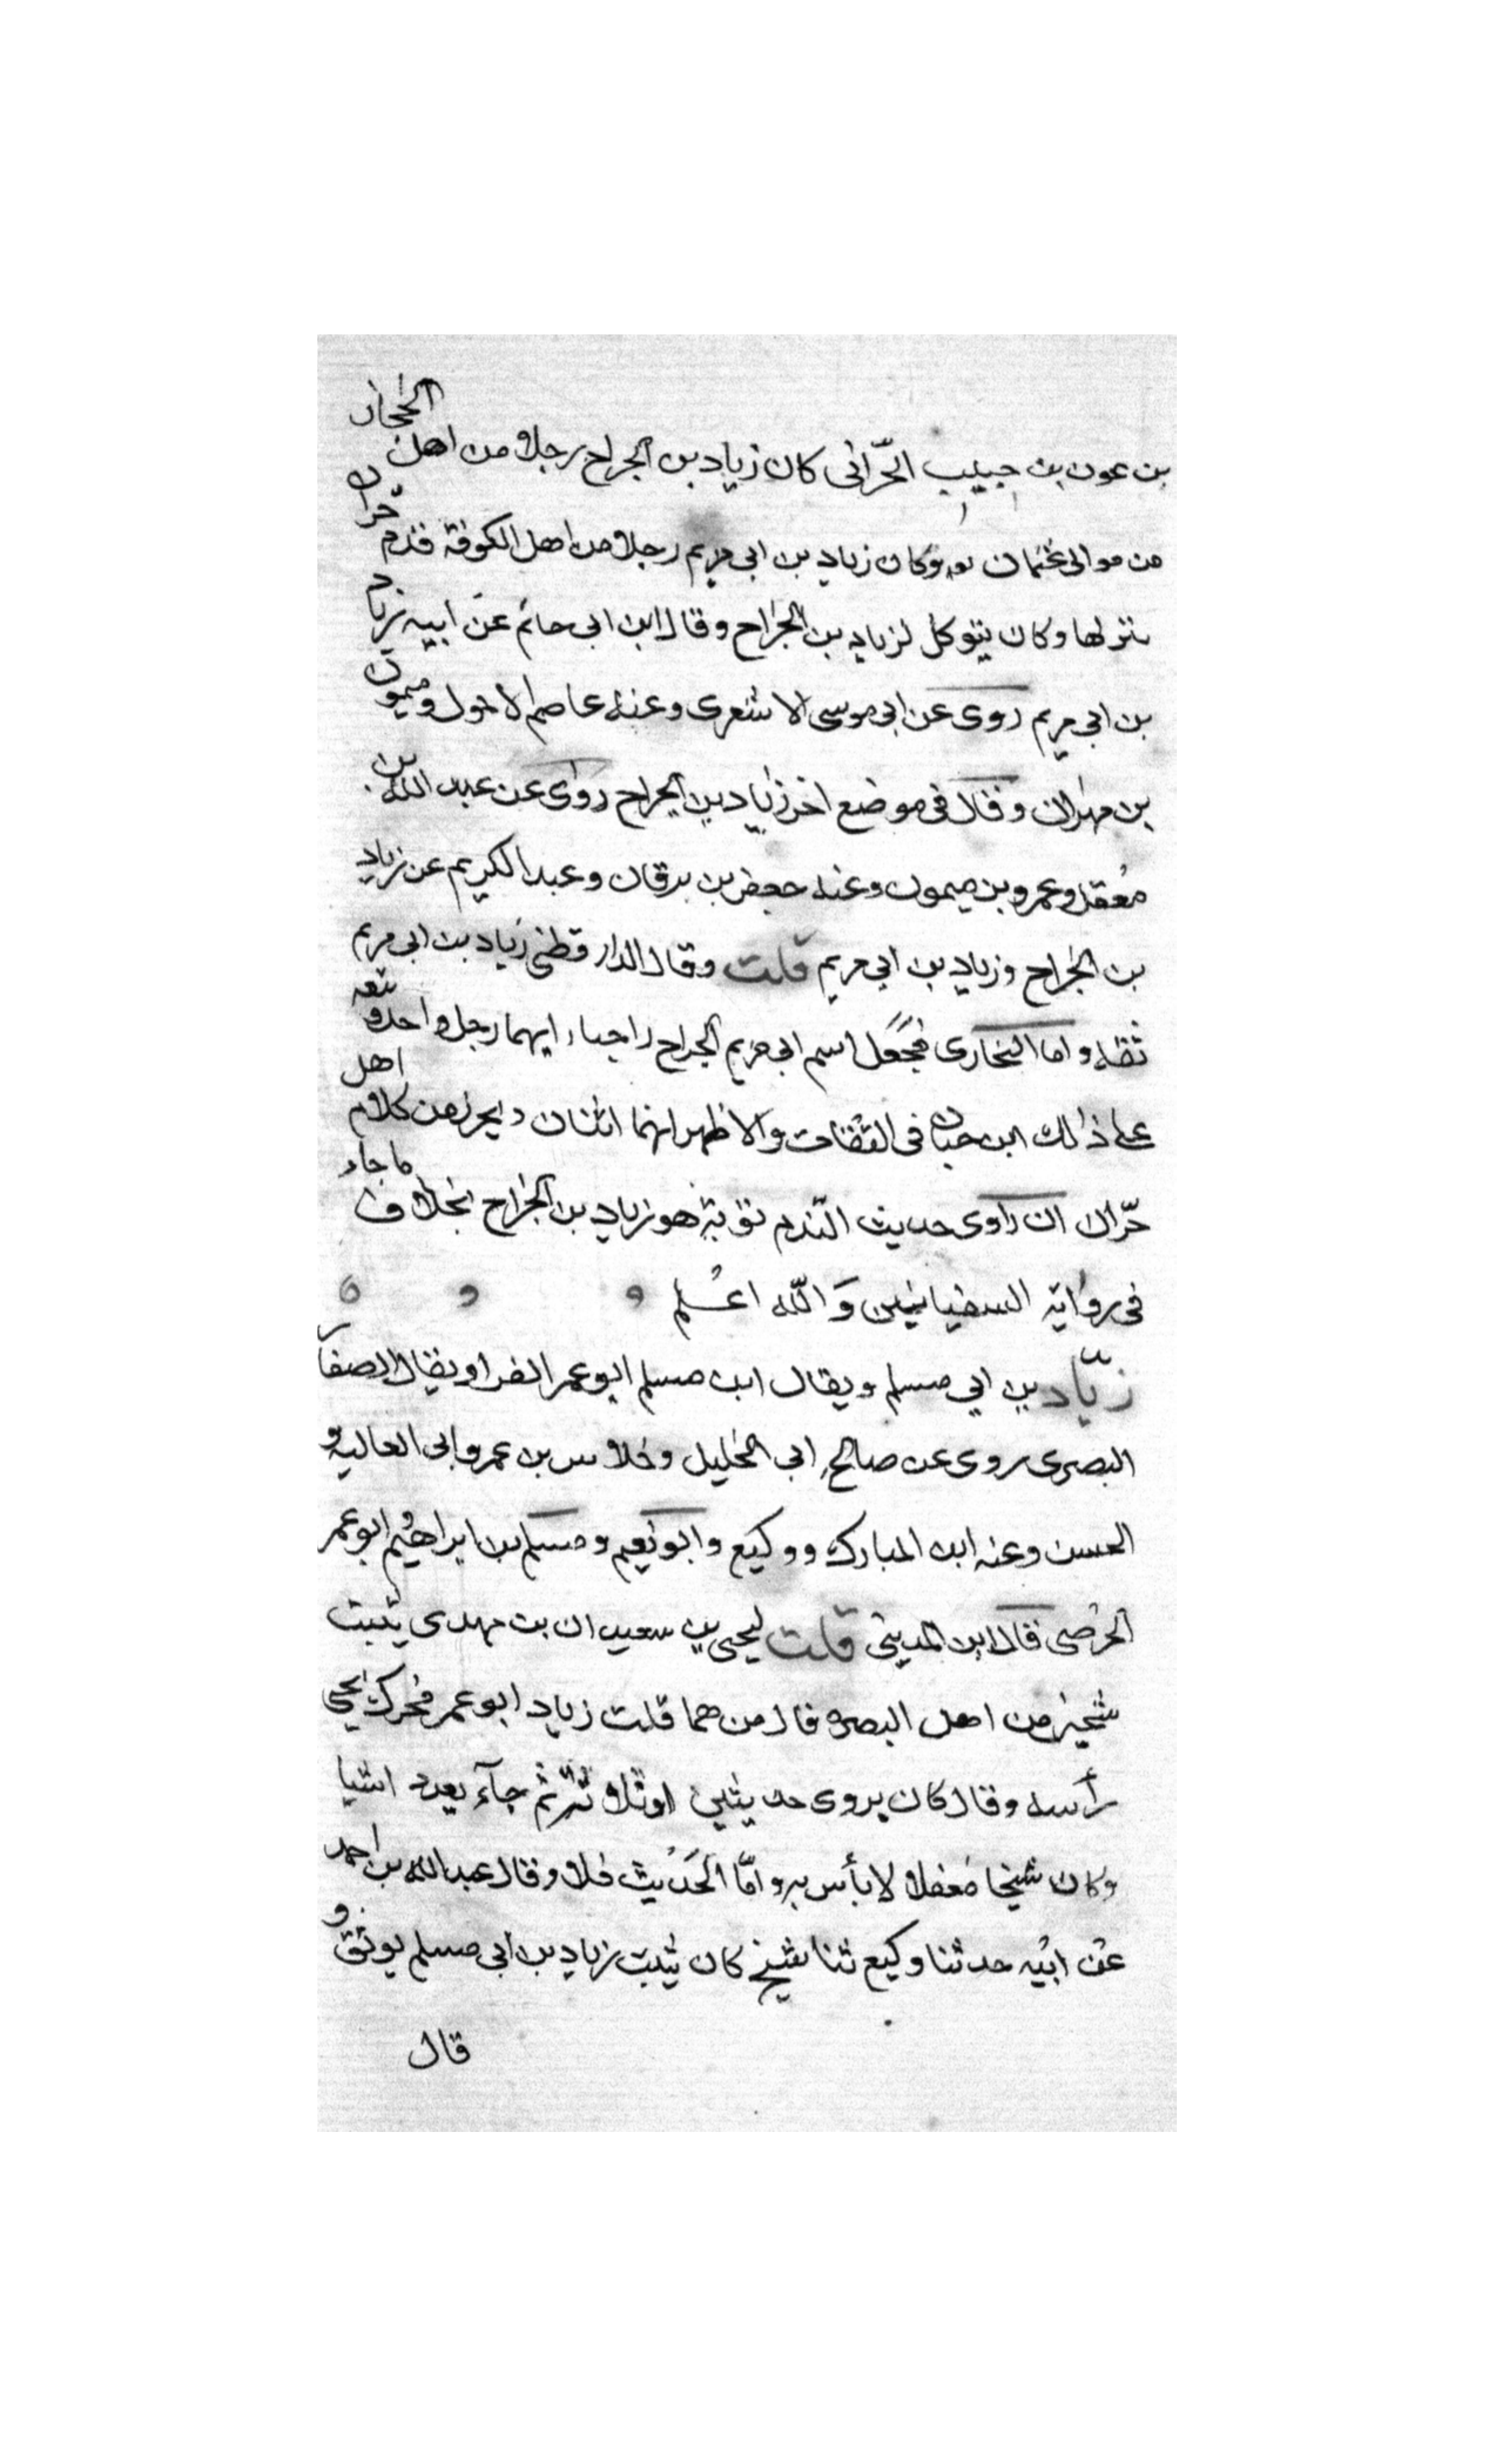 بن عون بن حبيب الحرّانى كان زياد بن الجراح رجلا من اهل الحجاز
من موالى عثمان وكان زياد بن ابى مريم رجلا من اهل الكوفة قدم حرّان
نزلها وكان يتوكل لزياد بن الجراح وقال ابن ابى حاتم عن ابيه زياد
بن ابى مريم روى عن ابى موسى الاشعرى وعنه عاصم الاحول وميمون
بن مهران وقال فى موضع اخر زياد بن الجراح روى عن عبد الله بن
معقل وعمرو بن ميمون وعنه جعفر بن برقان وعبد الكريم عن زياد
بن الجراح وزياد بن ابى مريم قلت وقال الدارقطنى زياد بن ابى مريم
ثقة واما البخارى فجعل اسم ابى مريم الجراح انهما رجل واحد وتبعه
على ذلك ابن حبان فى الثقات والاظهر انهما اثنان من كلام اهل
حرّان ان راوى حديث النّدم توبة هو زياد بن الجراح بخلاف ما جاء
فى رواية السفيانيين وَاللّه اعلم
زيّاد بن ابي مسلم ويقال ابن مسلم ابو عمر الفرا ويقال الصفار
البصرى روى عن صالح ابى الخليل وخلاس بن عمرو وابى العاليه و
الحسن وعنه ابن المبارك ووكيع وابو نعيم ومسلم بن ابراهيم ابو عمر
الحوضى قال ابن المدينى قلت ليحيى بن سعيد ان بن مهدى يثبت
شيخين من اهل البصره قال من هما قلت زياد ابو عمر فحرك يحيى
رأسه وقال كان يروى حديثين او ثلاثة ثم جآء بعد اشيا
وكان شيخا مغفلا لا بأس به وامّا الحَديث فلا وقال عبد الله بن احمد
عن ابيه حدثنا وكيع ثنا شيخ كان يثبت زياد بن ابى مسلم يوثق و
قال